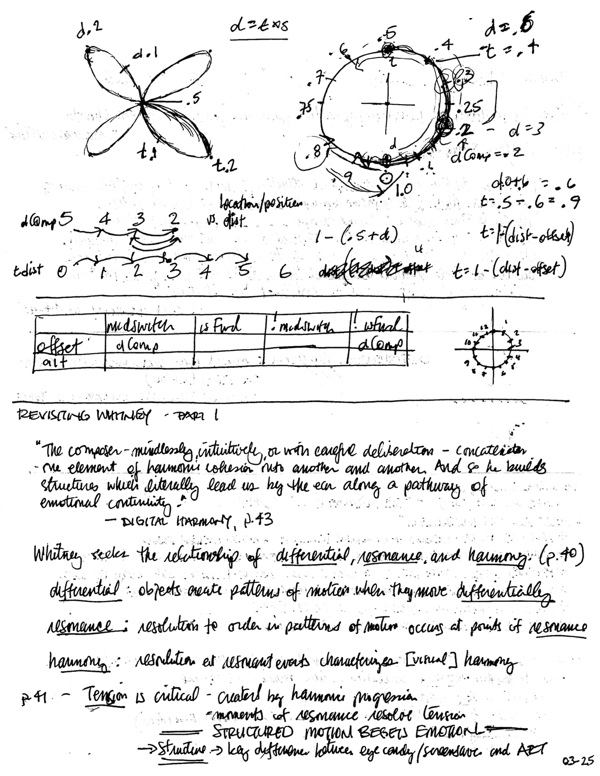 d.2
d.1
.5
t.1
t.2
d = t * s
.5
.4
.6
.7
.75
.25
.2
.8
.9
1.0
t
d
d = .6
t = .4
d = 3
dComp = .2
= .6
t = .5 - .6 = .9
location/position
vs. dist
dComp 5 4 3 2
t dist 0 1 2 3 4 5 6
1 - (.5 + d)
t = 1-(dist-offset)
t = 1 - (dist-offset)
midswitch isFwd !midswitch !isFwd
offset dComp dComp
alt
REVISITING WHITNEY - PART 1
"The composer - mindlessly, intuitively, or with careful deliberation - concatenates
one element of harmonic cohesion onto another and another. And so he builds
structures which literally lead us by the ear along a pathway of
emotional continuity."
— DIGITAL HARMONY, p.43
Whitney seeks the relationship of differential, resonance, and harmony. (p.40)
differential : objects create patterns of motion when they move differentially
resonance : resolution to order in patterns of motion occurs at points of resonance
harmony : resolution at resonant events characterizes [visual] harmony
p.41 - Tension is critical - created by harmonic progression
- moments of resonance resolve tension
STRUCTURED MOTION BEGETS EMOTION
→ Structure → key difference between eye candy/screensaver and ART
03-25